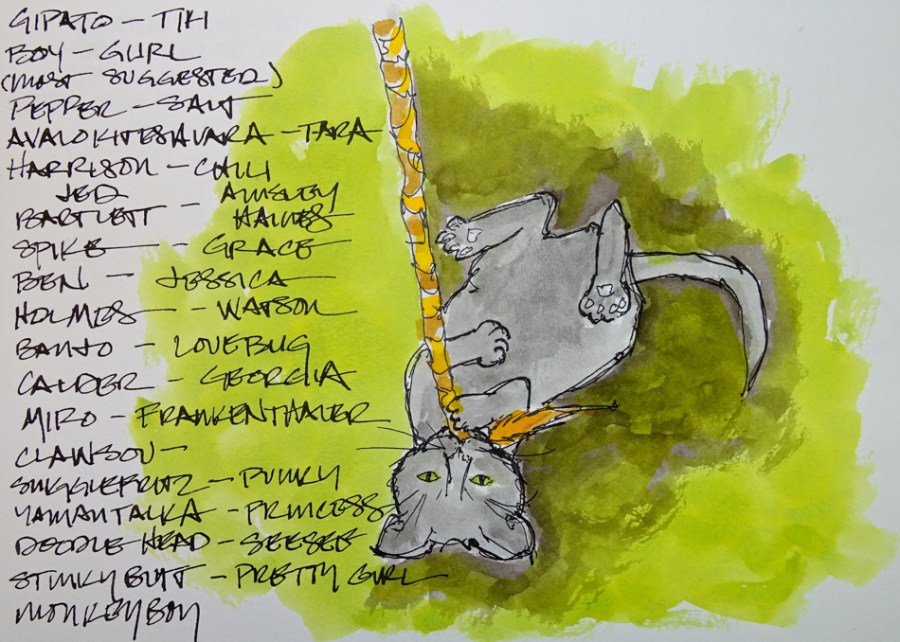 GIPATO – TIKI
BOY – GURL
(MOST SUGGESTED)
PEPPER – SALT
AVALOKITESAVARA – TARA
HARRISON – CALLI
JED BARTLETT – AINSLEY HAINES
SPIKE – GRACE
BEN – JESSICA
HOLMES – WATSON
BANJO – LOVEBUG
CALDER – GEORGIA
MIRO – FRANKENTHALER
CLAWSON –
SNUGGLEFRITZ – PUNKY
YAMANTALKA – PRINCESS
DOODLE HEAD – SEESEE
STINKY BUTT – PRETTY GURL
MONKEY BOY